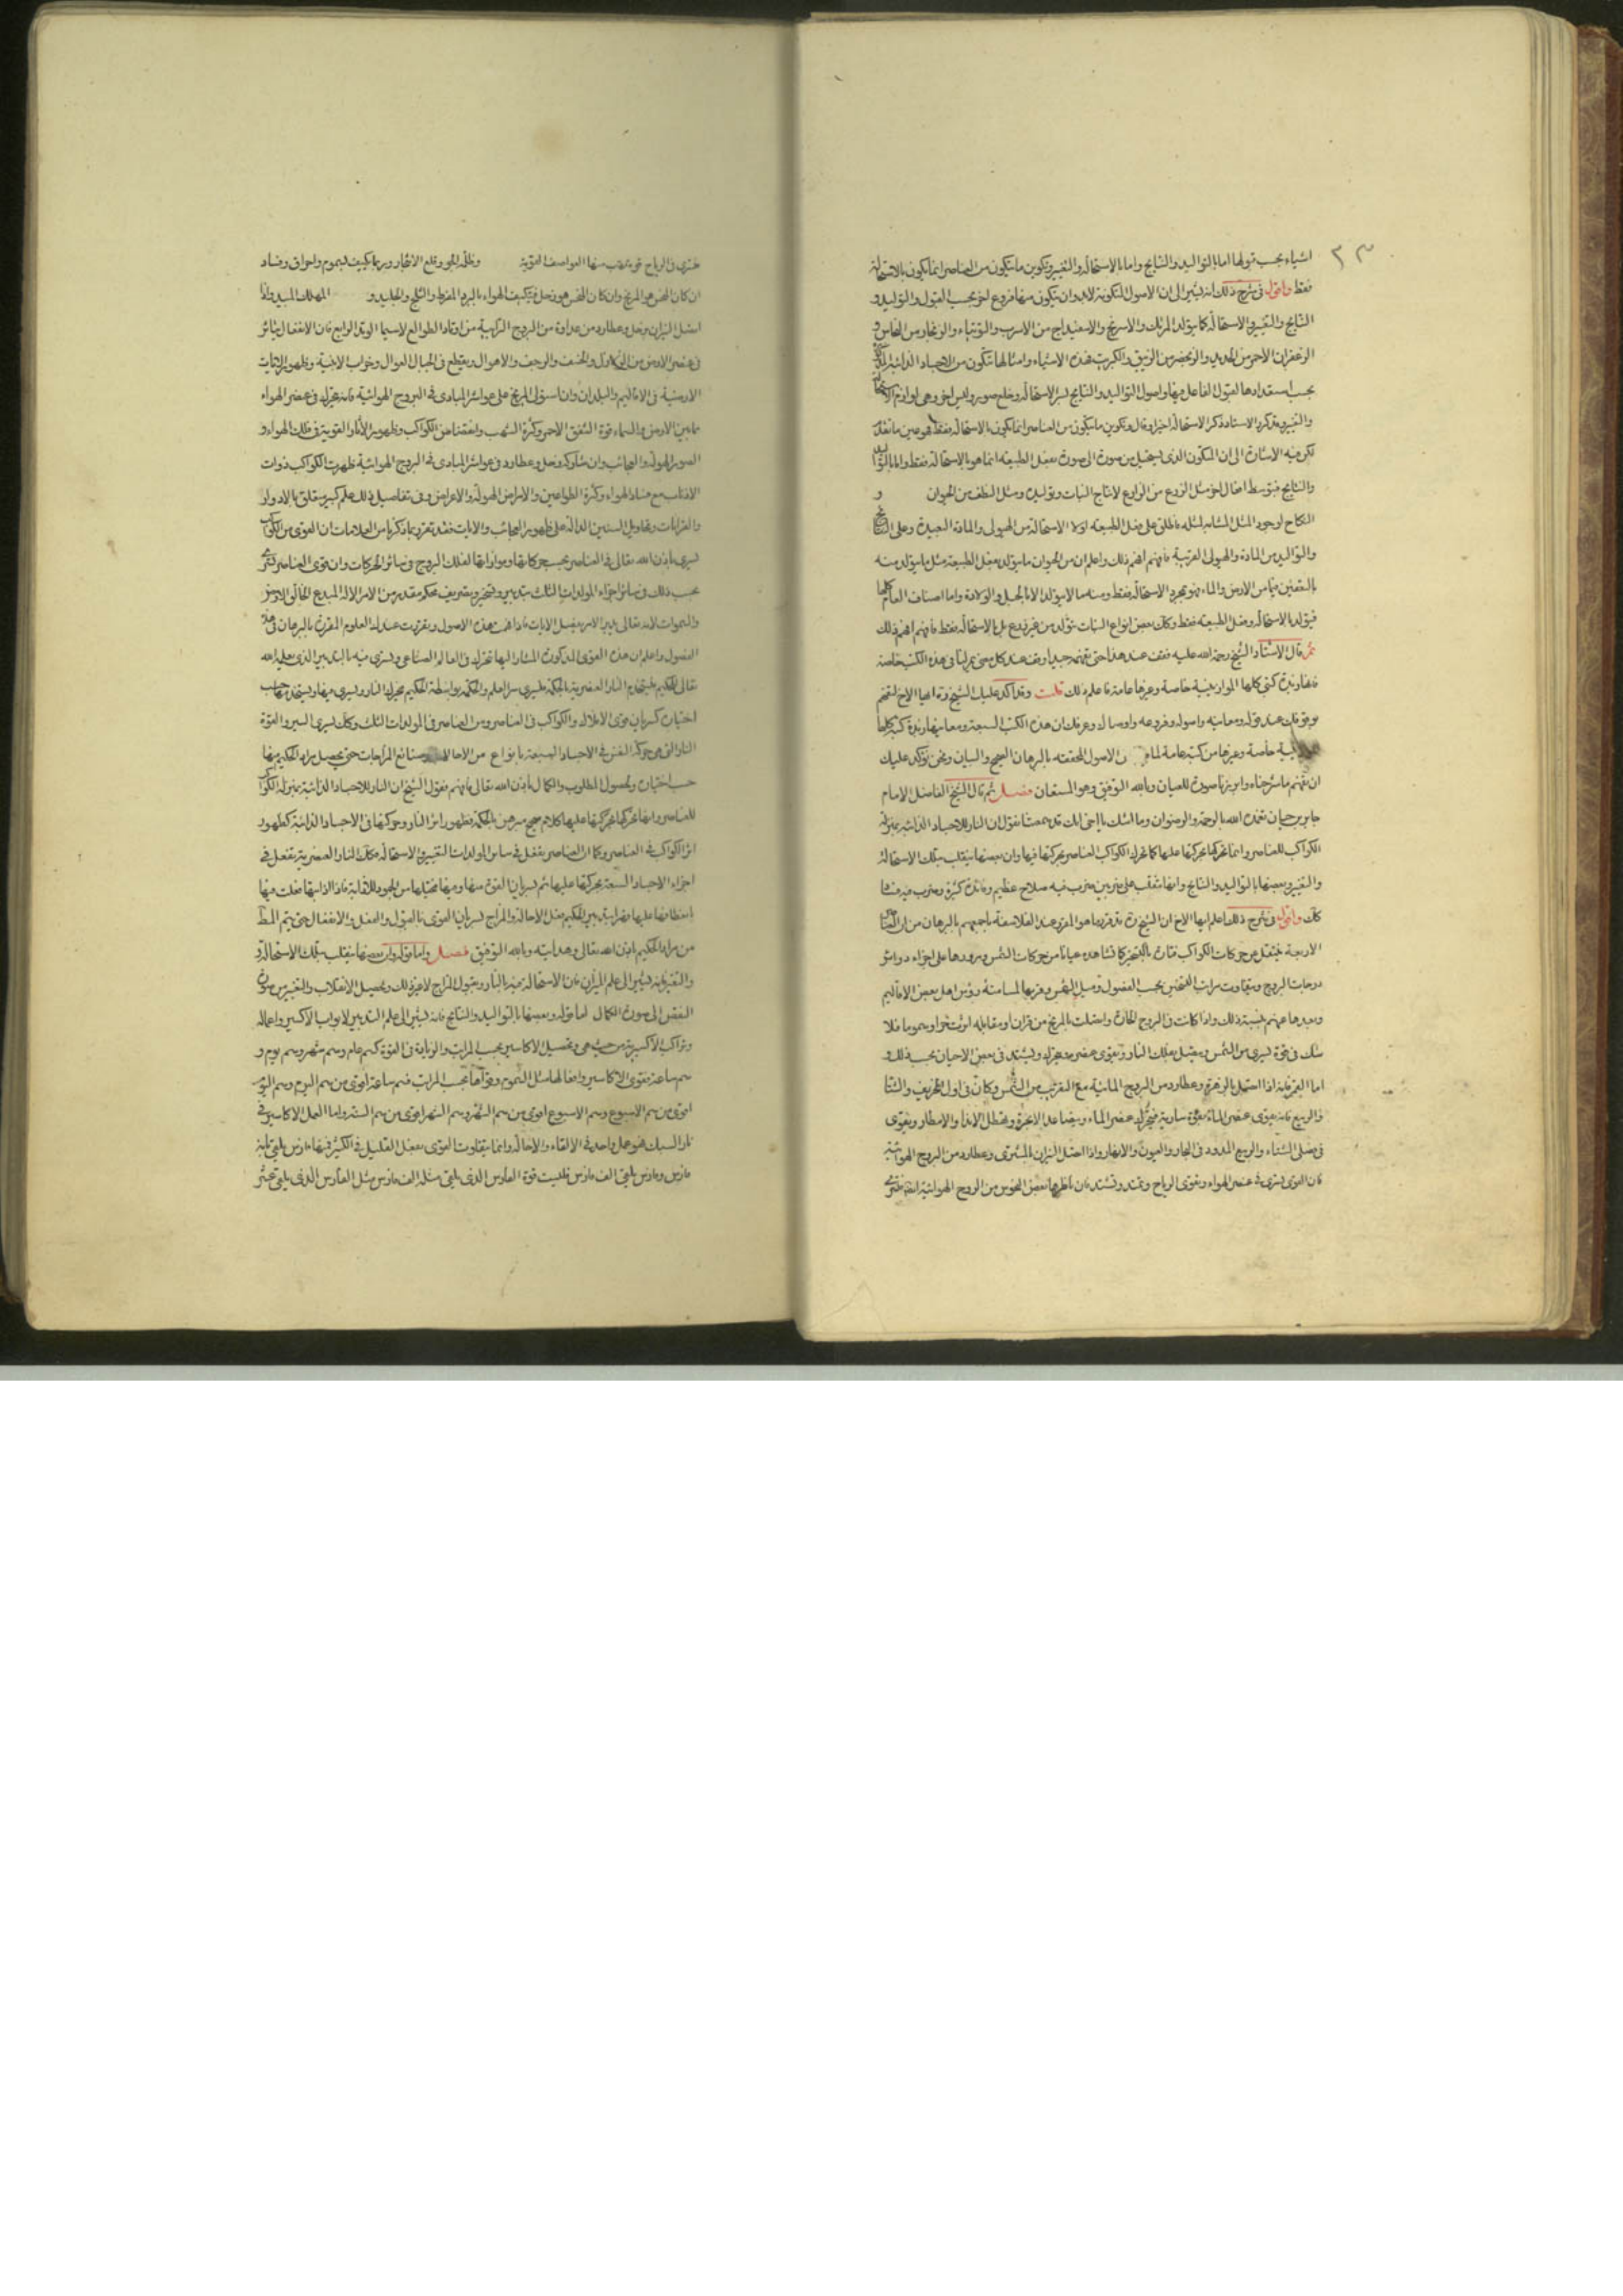 ٢٣
اشياء بحسب قبولها اما بالتواليد والنتايج واما بالاستحالة والتغيير وتكوين ما يتكون من العناصر انما يكون بالاستحالة
فقط واقول في شرح ذلك انه يشير الى ان الاصول المتكونة لا بد وان يتكون منها فروع اخر بحسب القبول والتوليد و
النتايج والتغيير والاستحالة كما يتولد المرتك والاسرنج والاسفيداج من الاسرب والتوتياء والزنجار من النحاس و
الزعفران الاحمر من الحديد والزنجفر من الزيبق والكبريت فهذه الاشياء وامثالها تتكون من الاجساد الذائبة
بحسب استعدادها لقبول الفاعل فيها واصول التواليد والنتايج لسر الاستحالة وخلع صورة ولبس اخرى وهي لوازم
والتغيير وقد كرر الاستاد ذكر الاستحالة اخيرا وقال وتكوين ما يتكون من العناصر انما يكون بالاستحالة فقط فهو عين ما تقدم
لكن فيه الاشارة الى ان المتكون الذي يستحيل من صورة الى صورة بفعل الطبيعة انما هو بالاستحالة فقط واما بالتواليد
والنتايج فبتوسط افعال اخر مثل الزرع من الزارع لانتاج النبات وتوليده ومثل النطف من الحيوان و
النكاح لوجود المثل المشابه لمثله فاطلق على فعل الطبيعة اولا الاستحالة من الهيولى والمادة البعيدة وعلى النتايج
والتواليد من المادة والهيولى القريبة فافهم افهم ذلك واعلم ان من الحيوان ما يتولد بفعل الطبيعة مثل ما يتولد منه
بالتعفين من الارض والماء فهو بمجرد الاستحالة فقط ومنه ما لا يتولد الا بالحبل والولادة واما اصناف العالم كلها
فيتولد بالاستحالة وفعل الطبيعة فقط وكان بعض انواع النبات يتولد من غير زرع بل بالاستحالة فقط فافهم افهم ذلك
ثم قال الاستاد الشيخ رحمة الله عليه فقف عند هذا حتى تفهمه جيدا وقف عند كل معنى يمر لنا في هذه الكتب خاصة
فانها زبدة كتبي كلها الموازينية خاصة وغيرها عامة فاعلم ذلك قلت وقد اكد عليك الشيخ قوة ايها الاخ لتفهم
بوقوفك عند قوله ومعانيه واصوله وفروعه واوصاله وعرفك ان هذه الكتب السبعة ومعانيها زبدة كتبه كلها
خاصة وغيرها من كتبه عامة لما من الاصول المحققة بالبرهان الصحيح والبيان ونحن نؤكد عليك
ان تفهم ما شرحناه وابرزناه صورة للعيان وبالله التوفيق وهو المستعان فصل ثم قال الشيخ الفاضل الامام
جابر بن حيان تغمده الله بالرحمة والرضوان وما اشك يا اخي انك قد سمعتنا نقول ان النار للاجساد الذائبة بمنزلة
الكواكب للعناصر وانما تحركها بحركتها عليها كما تحرك الكواكب العناصر بحركتها فيها وان بعضها ينقلب بتلك الاستحالة
والتغيير وبعضها بالتواليد والنتايج وانها تنقلب على ضربين ضرب فيه صلاح عظيم وفائدة كثيرة وضرب
كان واقول في شرح ذلك اعلم ايها الاخ ان الشيخ قد قرر ما هو المقرر عند الفلاسفة باجمعهم بالبرهان من ان العناصر
الاربعة تنفعل عن حركات الكواكب فتارة بالتسخين كما نشاهده عيانا من حركات الشمس ومرورها على اجزاء دوائر
درجات البروج ويتفاوت مراتب التسخين بحسب الفصول وميل الشمس وقربها لمسامتة رؤس اهل بعض الاقاليم
وبعدها عنهم بنسبة ذلك واذا كانت في البروج الحارة واتصلت بالمريخ من قران او مقابلة اثرت حرا وسموما فلا
شك في قوة تسري من الشمس فينفعل بتلك النار ويقوى عنصر ويشتد في بعض الاحيان بحسب ذلك و
اما القمر فانه اذا اتصل بالزهرة وعطارد من البروج المائية مع القرب من الشمس وكان في اول الخريف والشتا
والربيع فانه يقوى عنصر الماء بقوة سارية فيحرك عنصر الماء ويتصاعد الابخرة ويهطل الانداء والامطار ويقوى
في فصلي الشتاء والربيع المدود في البحار والعيون والانهار واذا اتصل النيران بالمشتري وعطارد من البروج الهوائية
فان القوى يسري في عنصر الهواء وتقوى الرياح وتمتد وتشتد فان ناظرها بعض النحوس من البروج الهوائية
فتسري في الرياح قوة تهب منها العواصف القوية وظلمة الجو وقلع الاشجار وربما يكيف بسموم واحراق وفساد
ان كان النحس هو المريخ وان كان النحس هو زحل فيكيف الهواء بالبرد المفرط والثلج والجليد و المهلك المبيد واذا
اتصل النيران وزحل وعطارد من عداوة من البروج الترابية من اوتاد الطوالع لاسيما الوتد الرابع فان الانفعال يتاثر
في عنصر الارض من الزلازل والخسف والرجف والاهوال ويقطع في الجبال العوال وخراب الابنية وظهور النباتات
الارضية في الاقاليم والبلدان وان استولى المريخ على عواشر المبادي في البروج الهوائية فانه يتحرك في عنصر الهواء
ما بين الارض والسماء قوة الشفق الاحمر وكثرة الشهب وانقضاض الكواكب وظهور الاثار القوية في فلك الهواء و
الصور الهولة والعجائب وان شاركه زحل وعطارد في عواشر المبادي في البروج الهوائية ظهرت الكواكب ذوات
الاذناب مع فساد الهواء وكثرة الطواعين والامراض الهولة والاعراض وفي تفاصيل ذلك علم كبير يتعلق بالادوار
والقرانات وتحاويل السنين الدالة على ظهور العجائب والايات فقد تقرر بما ذكرنا من العلامات ان القوى من الكواكب
تسري باذن الله تعالى في العناصر بحسب حركاتها ومواراتها لفلك البروج في سائر الحركات وان قوى العناصر تسري
بحسب ذلك في سائر اجزاء المولدات الثلث بتدبير وتسخير وتصريف محكم مقدر من الامر الاله المبدع الخالق الارض
والسموات لانه تعالى يدبر الامر يفصل الايات فاذا فهمت هذه الاصول وتقررت عندك العلوم المقررة بالبرهان في هذه
الفصول واعلم ان هذه القوى المذكورة المشار اليها تتحرك في العالم الصناعي وتسري فيه بالتدبير الذي يعلمه الله
تعالى للحكيم فيستخدم النار العنصرية بالحكمة فتسري سر العلم والحكمة بواسطة الحكيم محرك النار ويسري فيها ويستخدمها حسب
اختياره كسريان قوى الافلاك والكواكب في العناصر ومن العناصر في المولدات الثلث وكان يسري السر والقوة
النار التي هي حركة النفس في الاجساد السبعة بانواع من الاحالا وصنائع المزاجات حتى يحصل مراد الحكيم منها
حسب اختياره وحصول المطلوب والكمال باذن الله تعالى فافهم فقول الشيخ ان النار للاجساد الذائبة بمنزلة الكواكب
للعناصر وانها تحركها بحركتها عليها كلام صحيح مبرهن بالحكمة فظهور اثر النار وحركتها في الاجساد الذائبة كظهور
اثر الكواكب في العناصر وكما ان العناصر يفعل في سائر المولدات التغيير والاستحالة فكان النار العنصرية تفعل في
اجزاء الاجساد السبعة بحركتها عليها ثم سريان القوة منها وفيها فتحيلها من الجمود للاذابة فاذا اذابتها فعلت فيها
بانعطافها عليها فصرانية بتدبير الحكيم بفعل الاحالة والمزاج لسريان القوى بالقبول والفعل والانفعال حتى يتم المط
من مراد الحكيم باذن الله تعالى وهدايته وبالله التوفيق فصل واما قوله وان بعضها ينقلب بتلك الاستحالة و
والتغير فانه يشير الى علم الميزان فان الاستحالة فيه بالنار وقبول المزاج لا غير ذلك وتحصيل الانقلاب والتغيير من صورة
النقص الى صورة الكمال اما قوله وبعضها بالتواليد والنتايج فانه يشير الى علم التدبير لابواب الاكسير واعماله
وتراكيب الاكسيرية من حيث هي وتحصيل الاكاسير بحسب المراتب والزيادة في القوة كسم عام وسم شهر وسم يوم و
سم ساعة فقوى الاكاسير وافعالها مثل السموم وقواها بحسب المراتب فسم ساعة اقوى من سم اليوم وسم اليوم
اقوى من سم الاسبوع وسم الاسبوع اقوى من سم الشهر وسم الشهر اقوى من سم السنة واما العمل الاكاسير في
نار السبك فهو عمل واحد في الالقاء والاحالة وانما يتفاوت القوى بفعل القليل في الكثير فمنها فارس يلقى مائة
فارس وفارس يلقى الف فارس فليست قوة الفارس الذي يلقى مثله الف فارس مثل الفارس الذي يلقى عشر